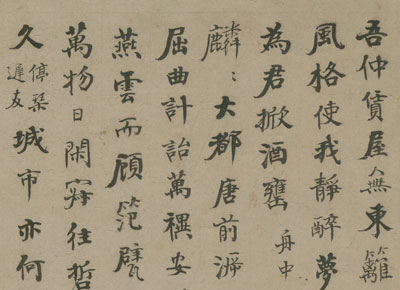 吾仲賃屋無東籬
風格使我靜醉夢
為君掀酒甕舟中
麟〻大都唐前
屈曲計詒萬禩安
燕雲而顧笵甓
萬物日閑寂住哲
久停琴遲友城市亦何